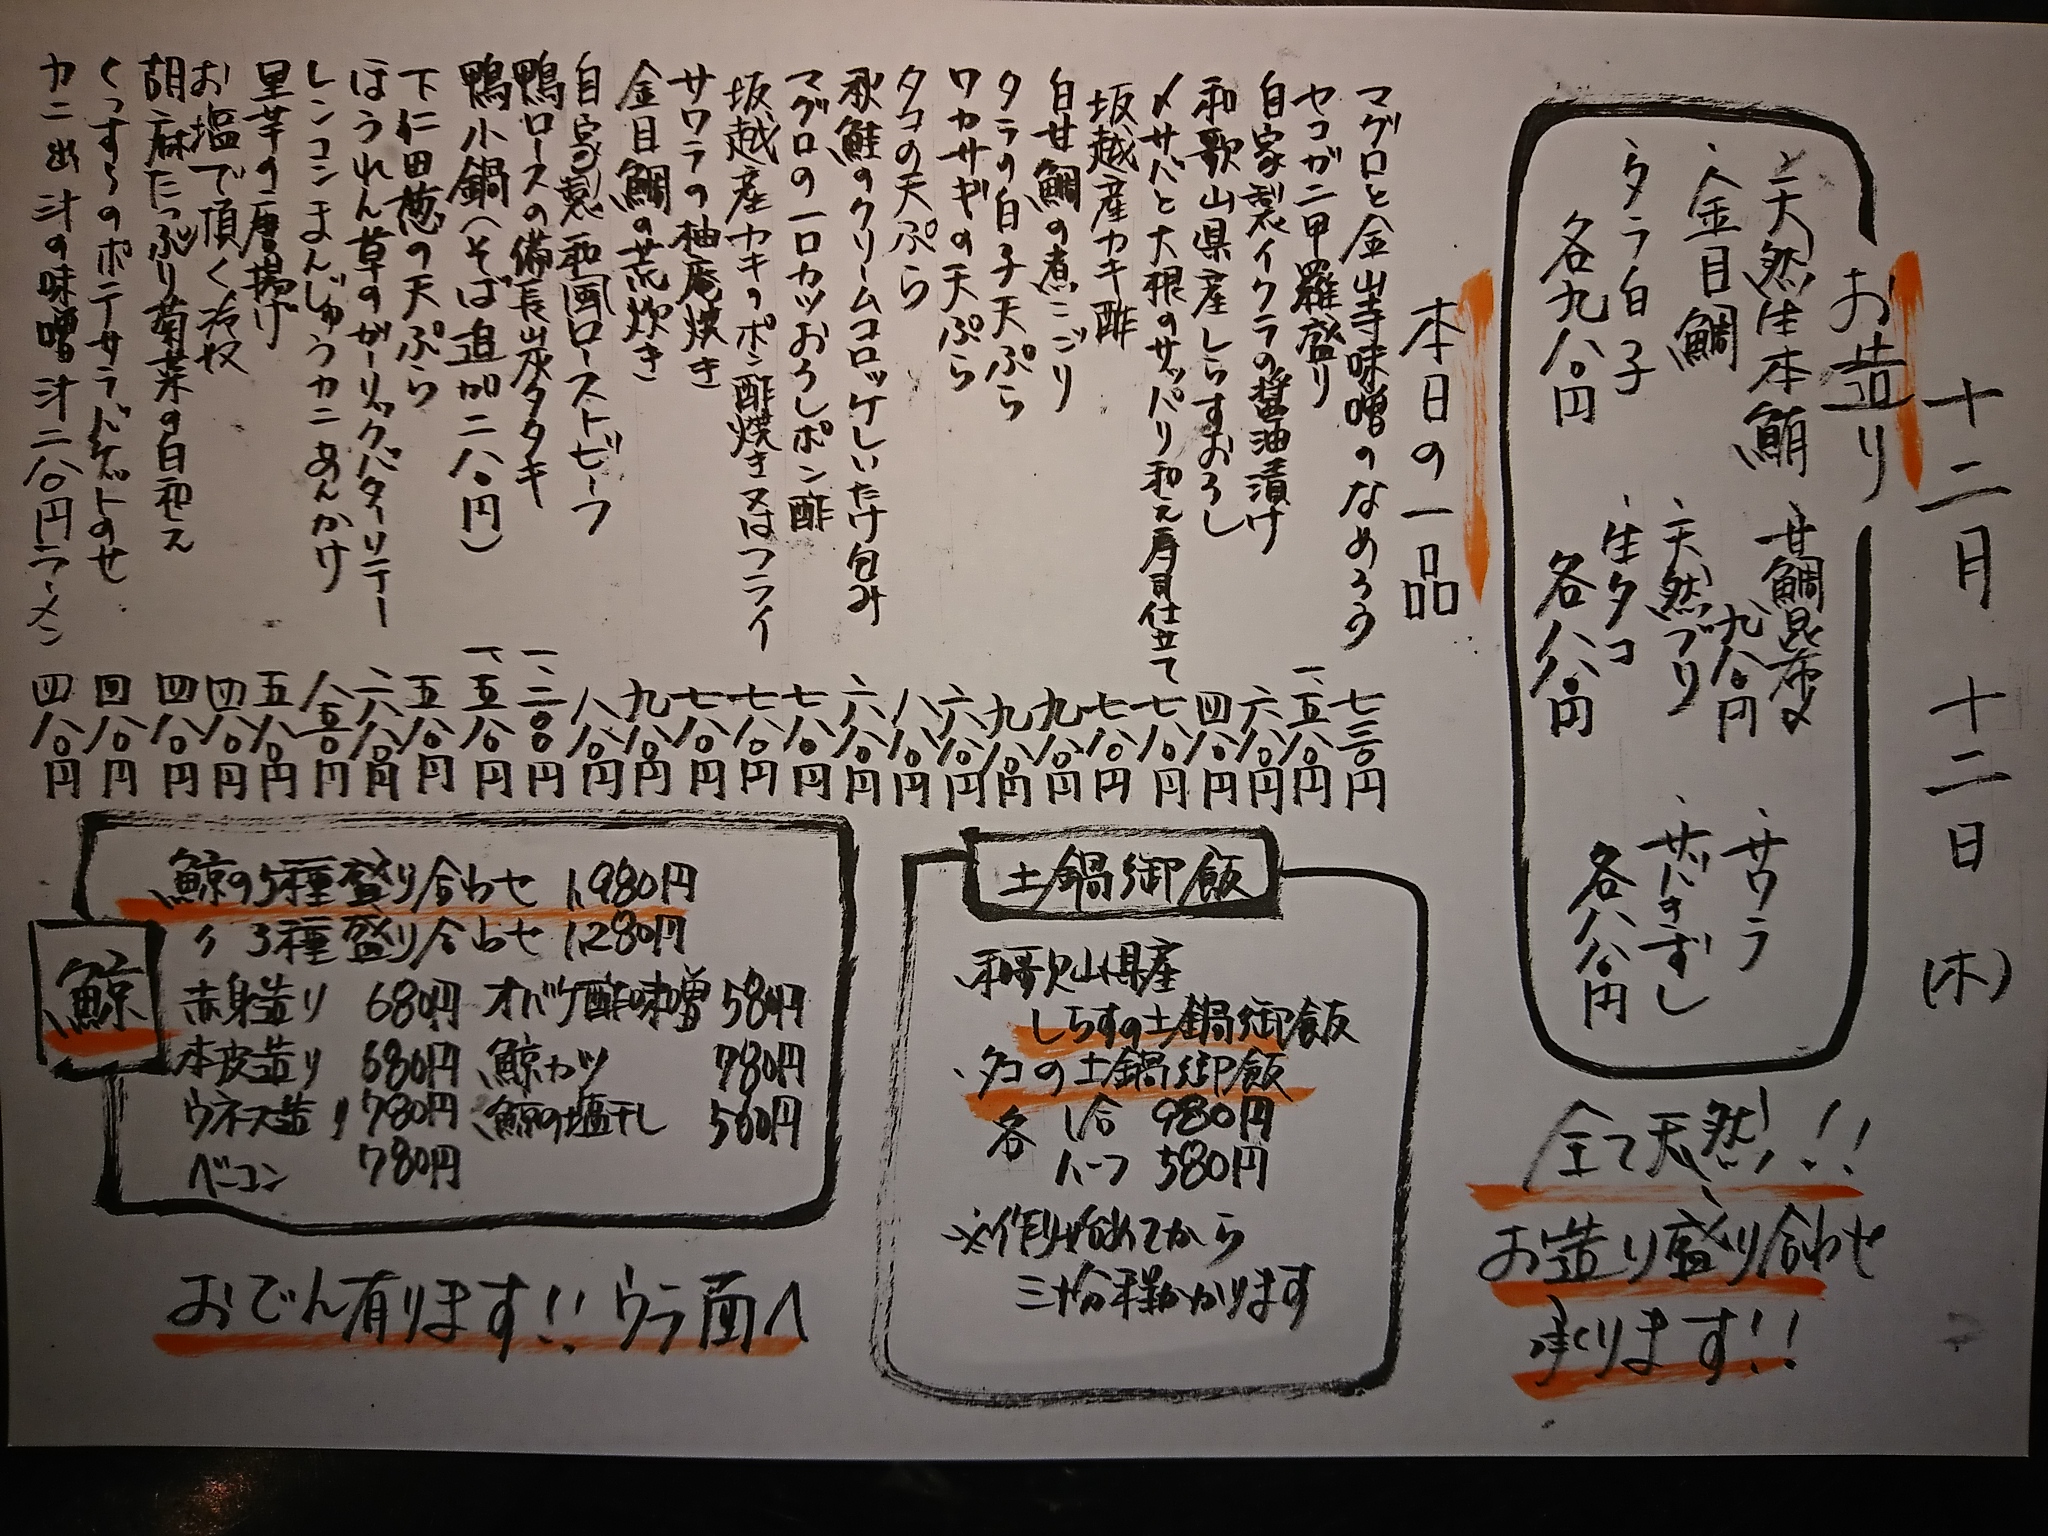 十二月 十二日 (木)
お造り
、天然生本鮪
、金目鯛
、タラ白子
各九八〇円
、甘鯛昆布〆
九八〇円
、天然ブリ
、生タコ
各八八〇円
、サワラ
、サバきずし
各八八〇円
全て天然!!
お造り盛り合わせ
承ります!!
本日の一品
マグロと金山寺味噌のなめろう 七三〇円
セコガニ甲羅盛り 一、五八〇円
自家製イクラの醤油漬け 六八〇円
和歌山県産しらすおろし 四八〇円
〆サバと大根のサッパリ和え寿司仕立て 七八〇円
坂越産カキ酢 七八〇円
白甘鯛の煮こごり 九八〇円
タラの白子天ぷら 九八〇円
ワカサギの天ぷら 六八〇円
タコの天ぷら 八八〇円
秋鮭のクリームコロッケしいたけ包み 六八〇円
マグロの一口カツおろしポン酢 七八〇円
坂越産カキのポン酢焼き又はフライ 七八〇円
サワラの柚庵焼き 七八〇円
金目鯛の荒炊き 九八〇円
自家製和風ローストビーフ 八八〇円
鴨ロースの備長炭タタキ 一、二〇〇円
鴨小鍋(そば追加二八〇円) 一、五八〇円
下仁田葱の天ぷら 五八〇円
ほうれん草のガーリックバターソテー 六八〇円
レンコンまんじゅうカニあんかけ 八五〇円
里芋の唐揚げ 五八〇円
お塩で頂く冷奴 四八〇円
胡麻たっぷり菊菜の白和え 四八〇円
くっすーのポテサラバゲットのせ 四八〇円
カニ出汁の味噌汁二八〇円ラーメン 四八〇円
土鍋御飯
和歌山県産
しらすの土鍋御飯
、タコの土鍋御飯
各 1合 980円
ハーフ 580円
※作り始めてから
三十分程かかります
鯨
鯨の5種盛り合わせ 1,980円
〃 3種盛り合わせ 1,280円
赤身造り 680円 オバケ酢味噌 580円
本皮造り 680円 鯨カツ 780円
ウネス造り 780円 鯨の塩干し 560円
ベーコン 780円
おでん有ります!! ウラ面へ